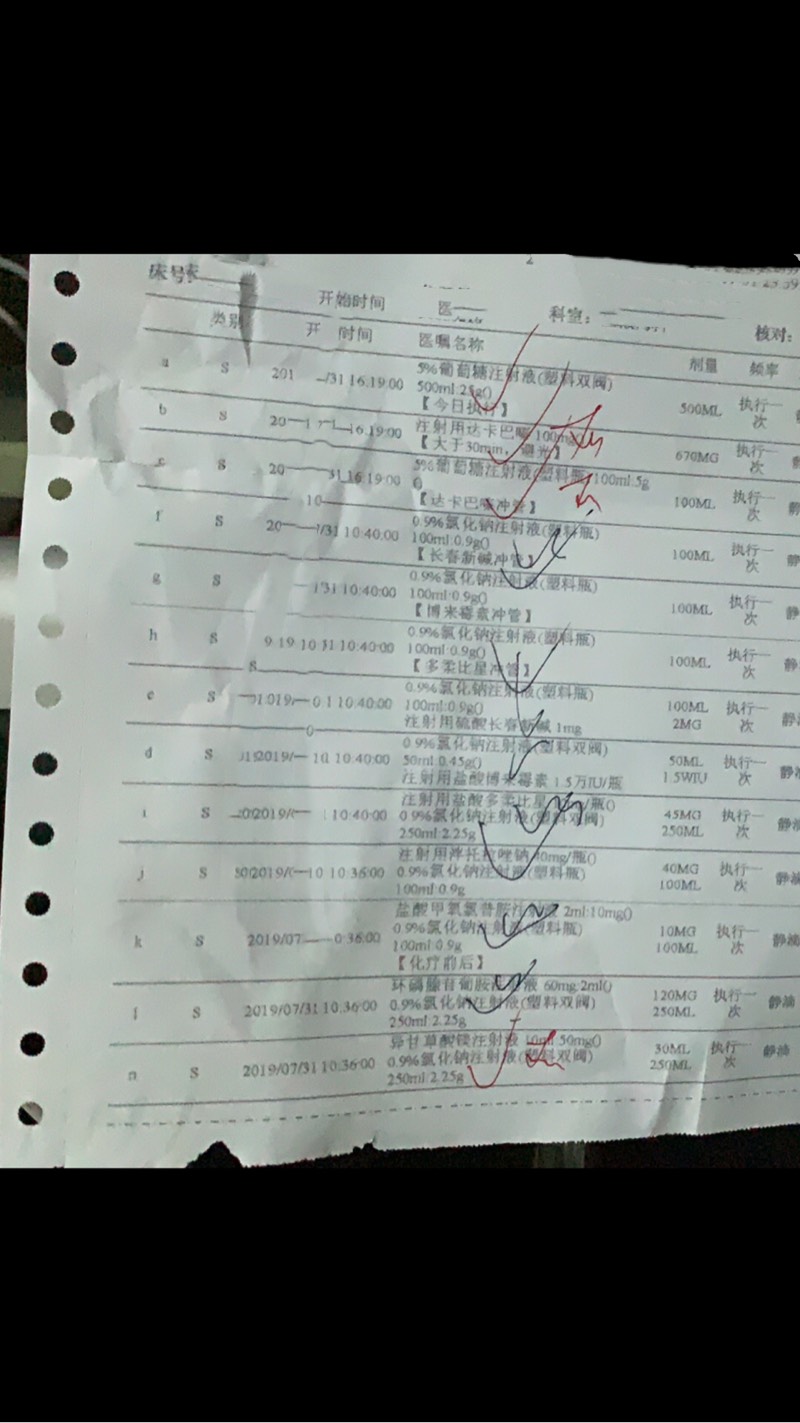 床号
开始时间 医 科室: 核对:
类别 开 时间 医嘱名称 剂量 频率
a S 201 /31 16:19:00 5%葡萄糖注射液(塑料双阀) 500ML 执行一次
500ml:25g()
【今日执行】
b S 20 16:19:00 注射用达卡巴嗪 100mg 670MG 执行一次
【大于30mm, 曝光】
c S 20 31 16:19:00 5%葡萄糖注射液(塑料瓶)100ml:5g 100ML 执行一次 静
()
【达卡巴嗪冲管】
f S 20 /31 10:40:00 0.9%氯化钠注射液(塑料瓶) 100ML 执行一次 静
100ml:0.9g()
【长春新碱冲管】
g S /31 10:40:00 0.9%氯化钠注射液(塑料瓶) 100ML 执行一次 静
100ml:0.9g()
【博来霉素冲管】
h S 9 19 10 31 10:40:00 0.9%氯化钠注射液(塑料瓶) 100ML 执行一次 静
100ml:0.9g()
【多柔比星冲管】
e S 10:40:00 0.9%氯化钠注射液(塑料瓶) 100ML 执行一次 静
100ml:0.9g()
注射用硫酸长春新碱 1mg 2MG
d S 2019/ 10:40:00 0.9%氯化钠注射液(塑料双阀) 50ML 执行一次 静
50ml:0.45g()
注射用盐酸博来霉素 1.5万IU/瓶 1.5WIU
i S 2019/ 10:40:00 注射用盐酸多柔比星 /瓶() 45MG 执行一次 静滴
0.9%氯化钠注射液(塑料双阀) 250ML
250ml:2.25g
j S 2019/ 10:36:00 注射用泮托拉唑钠 40mg/瓶() 40MG 执行一次 静滴
0.9%氯化钠注射液(塑料瓶) 100ML
100ml:0.9g
k S 2019/07 0:36:00 盐酸甲氧氯普胺注射液 2ml:10mg() 10MG 执行一次 静滴
0.9%氯化钠注射液(塑料瓶) 100ML
100ml:0.9g
【化疗前后】
l S 2019/07/31 10:36:00 环磷腺苷葡胺注射液 60mg:2ml() 120MG 执行一次 静滴
0.9%氯化钠注射液(塑料双阀) 250ML
250ml:2.25g
n S 2019/07/31 10:36:00 异甘草酸镁注射液 10ml:50mg() 30ML 执行一次 静滴
0.9%氯化钠注射液(塑料双阀) 250ML
250ml:2.25g